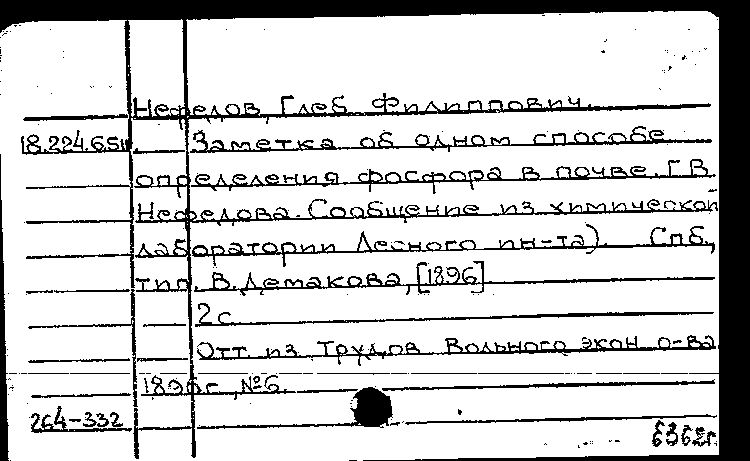 Нефедов, Глеб Филиппович.
18.224.6.51. Заметка об одном способе
определения фосфора в почве. Г. В.
Нефедова. Сообщение из химической
лаборатории Лесного ин-та). Спб.,
тип. В. Демакова, [1896]
2 с.
Отт. из Трудов Вольного экон. о-ва
1896 г., №6.
264-332
6362г.